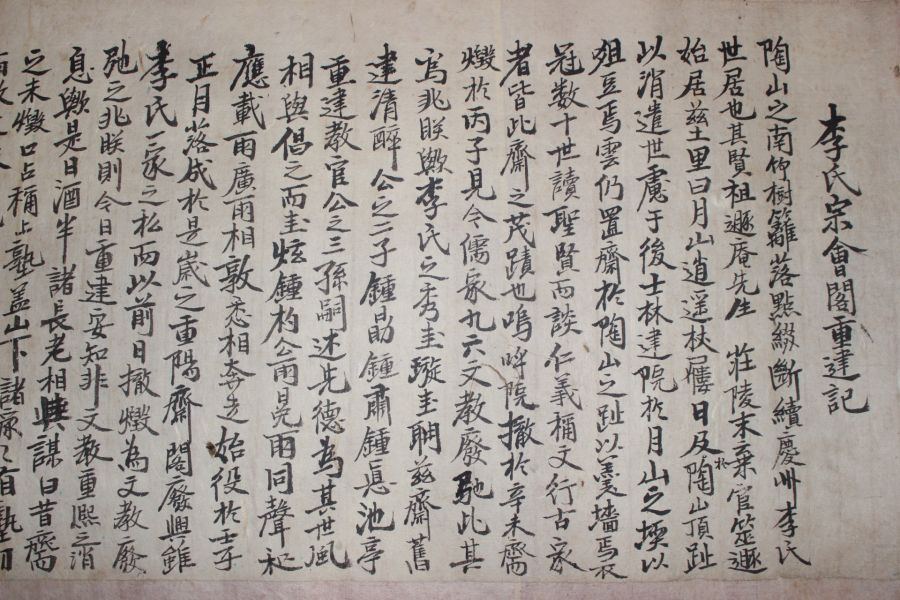 李氏宗會閣重建記
陶山之南仰樹籬落點綴斷續慶州李氏
世居也其賢祖遯庵先生 莊陵末棄官筮遯
始居茲土里曰月山逍遥杖屨日及於陶山頂趾
以消遣世慮于後士林建院於月山之墺以
俎豆焉雲仍置齋於陶山之趾以羹墻焉衣
冠数十世讀聖賢而談仁義稱文行古家
者皆此齋之茂蹟也嗚呼院撤於辛未齋
燬於丙子見今儒家九六文教廢弛此其
為兆眹歟李氏之秀圭璇圭聃茲齋舊
建清醉公之二子鍾勛鍾肅鍾㥀池亭
重建教官公之三孫嗣述先德為其世風
相與倡之而圭炫鍾杓公雨晃雨同聲和
應載雨廣雨相敦悉相奔走始役於壬子
正月落成於是歲之重陽齋閣廢興雖
李氏一家之私而以前日撤燬為文教廢
弛之兆眹則今日重建安知非文教重熙之消
息歟是日酒半諸長老相與謀曰昔齋
之未燬口占稱上塾盖山下諸 有塾